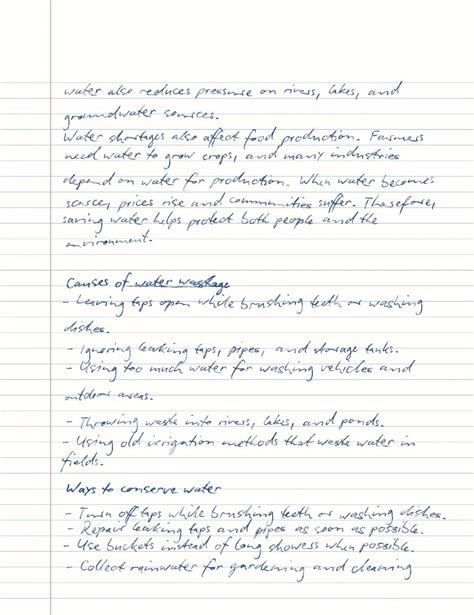 water also reduces pressure on rivers, lakes, and
groundwater sources.
Water shortages also affect food production. Farmers
need water to grow crops, and many industries
depend on water for production. When water becomes
scarce, prices rise and communities suffer. Therefore,
saving water helps protect both people and the
environment.
Causes of water wastage
- Leaving taps open while brushing teeth or washing
dishes.
- Ignoring leaking taps, pipes, and storage tanks.
- Using too much water for washing vehicles and
outdoor areas.
- Throwing waste into rivers, lakes, and ponds.
- Using old irrigation methods that waste water in
fields.
Ways to conserve water
- Turn off taps while brushing teeth or washing dishes.
- Repair leaking taps and pipes as soon as possible.
- Use buckets instead of long showers when possible.
- Collect rainwater for gardening and cleaning